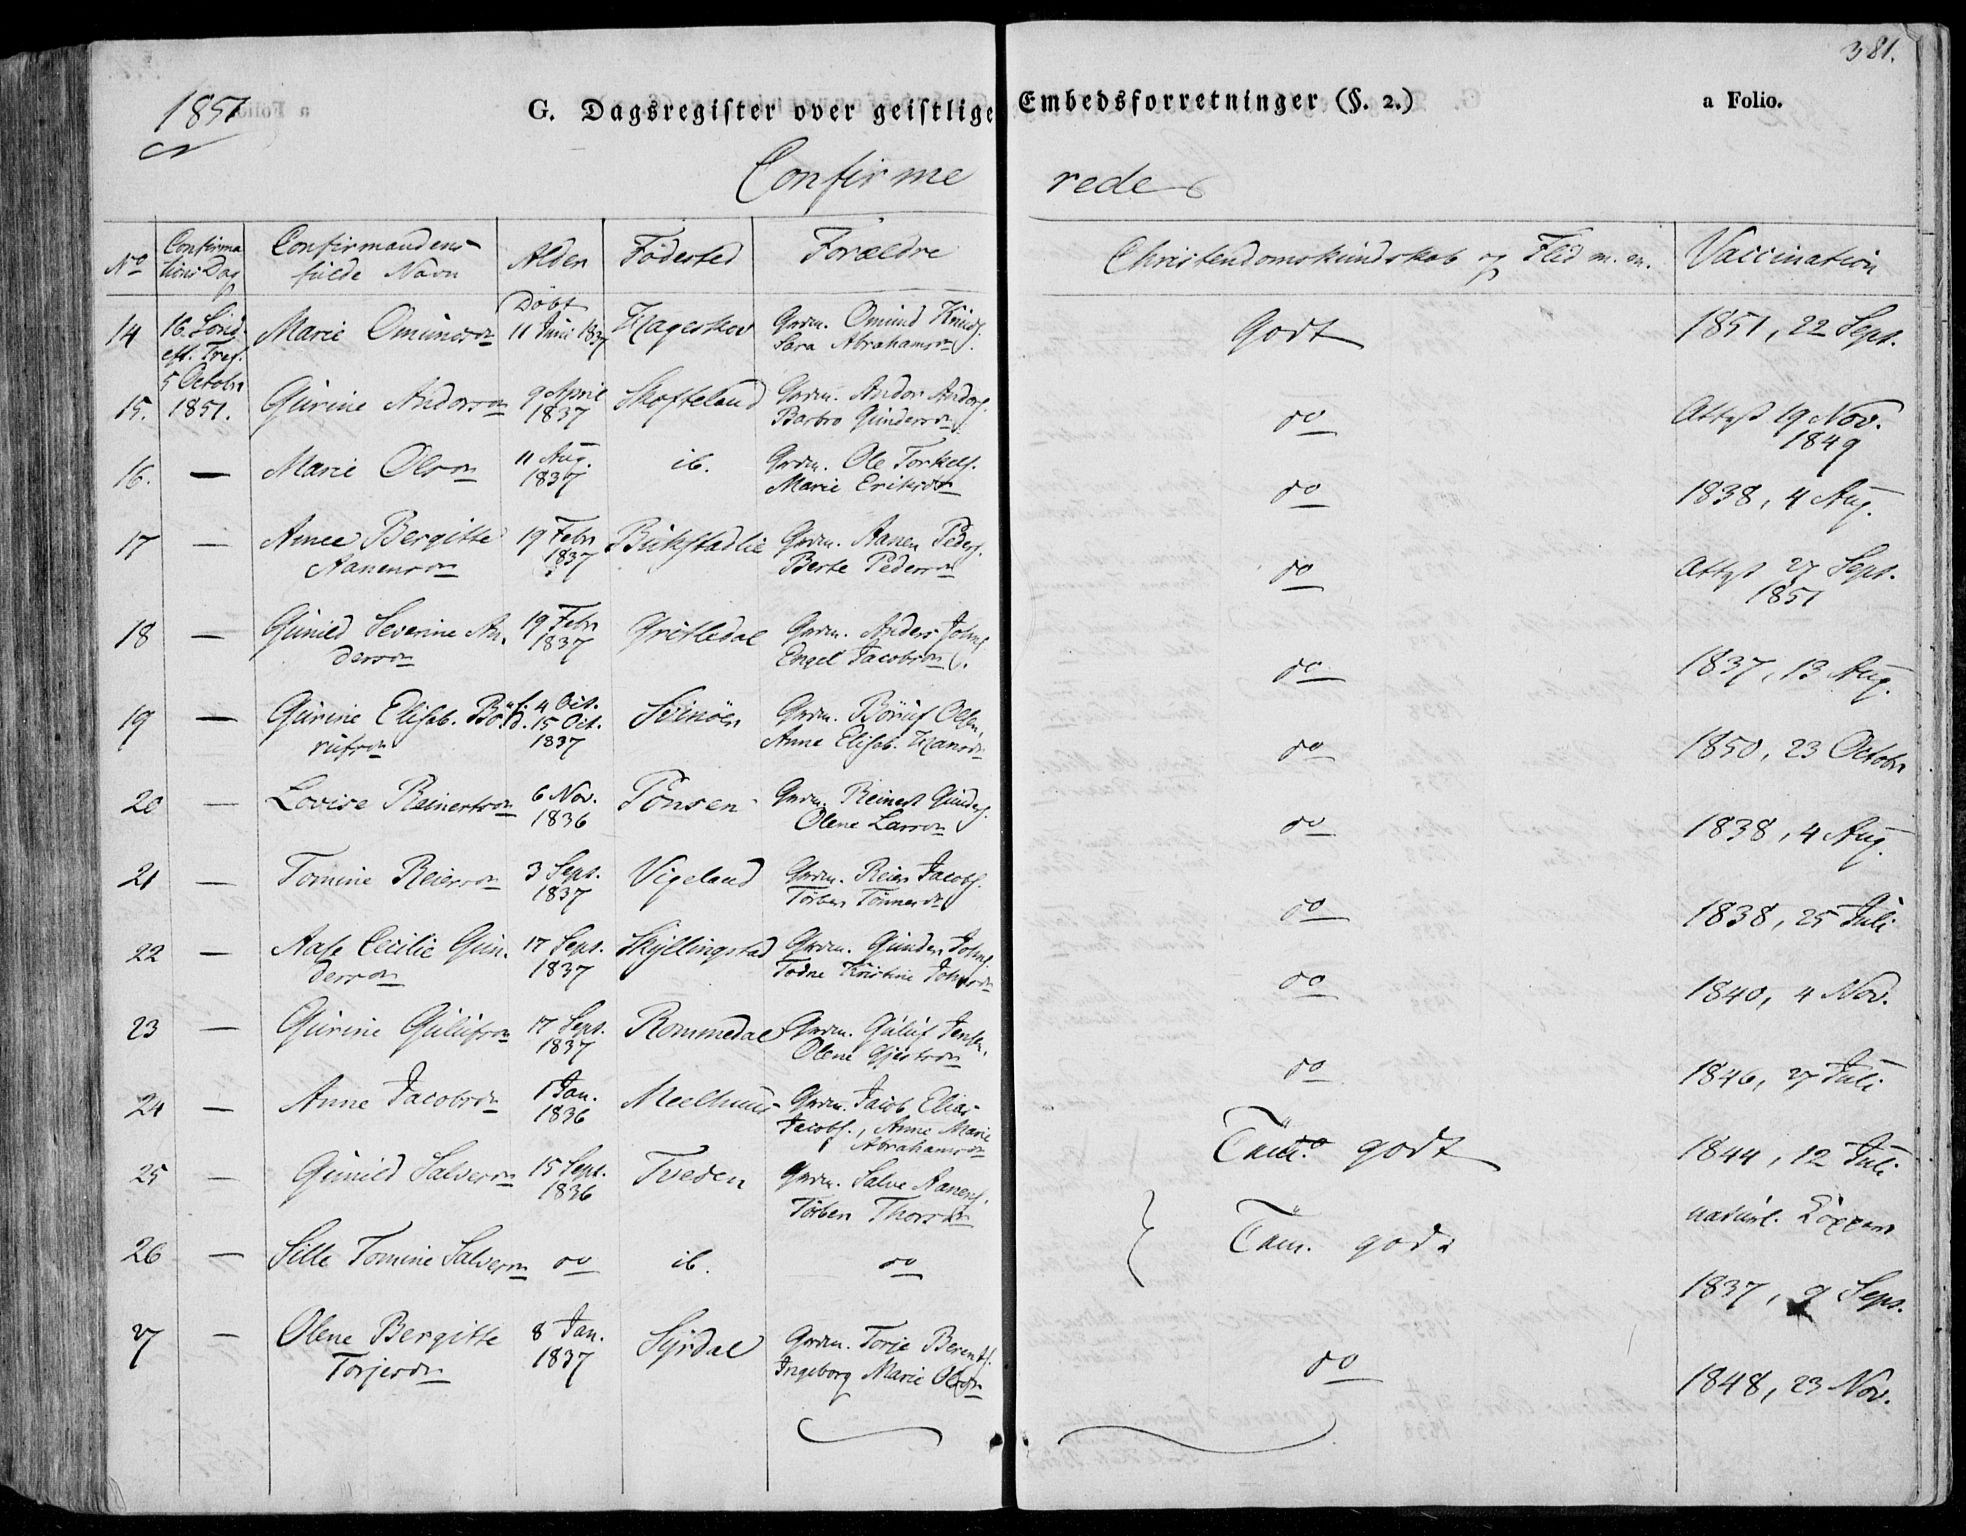 381.
1851
G. Dagsregister over geistlige Embedsforretninger (§. 2.) a Folio.
Confirmerede
No Confirmationsdag Confirmandens fulde Navn Alder Fødested Forældre Christendomskundskab og Flid m. m. Vaccination
14 16 Sønd. eft. Tref. 5 Octobr 1851. Marie Omundsdn Døbt 11 Juni 1837 Grdm. Omund Knuds. Sara Abrahamsdn Godt 1851, 22 Sept.
15. Gurine Andersdn 9 April 1837 Skofteland Grdm. Anders Anders. Barbro Gundersdn do Attest 19 Nov. 1849
16. — Marie Olsdn 11 Aug. 1837 ib. Grdm. Ole Torkels. Marie Eriksdn do 1838, 4 Aug.
17 — Annee Bergitte Aanensdn 19 Febr 1837 Grdm. Aanen Peders. Berte Pedersdn do Attest 27 Sept. 1851
18 — Gunild Severine Andersdn 19 Febr 1837 Grdm. Anders Johns. Engel Jacobsdn do 1837, 13 Aug.
19 — Gurine Elisab. Børufsdn f. 4 Oct. d. 15 Oct. 1837 Svinøer Grdm. Børuf Olsen, Anne Elisab. Hansdn do 1850, 23 Octobr
20 — Lovise Reinertsdn 6 Nov. 1836 Grdm. Reinert Gunders. Olene Larsdn do 1838, 4 Aug.
21 — Tomine Reiersdn 3 Sept. 1837 Vigeland Grdm. Reier Jacobs. Torber Tønnesdn do 1838, 25 Juli
22 — Aase Cecilie Gundersdn 17 Sept. 1837 Skyllingstad Grdm. Gunder Johns. Todne Kristine Johnsdn do 1840, 4 Nov.
23 — Gurine Gulufsdn 17 Sept. 1837 Rommedal Grdm. Guluf Jensen, Olene do 1846, 27 Juli
24 — Anne Jacobsdn 1 Jan. 1836 Meelhuus Grdm. Jacob Elias Jacobs., Anne Marie Abrahamsdn Tem. godt 1844, 12 Juli
25 — Gunild Salvesdn 15 Sept. 1836 Tveden Grdm. Salve Aanens. Torber Thorsdn Tem. godt naturl. Kopper
26 — Sille Tomine Salvesdn do ib. do 1837, 9 Sept.
27 — Olene Bergitte Torjesdn 8 Jan. 1837 Syrdal Grdm. Torje Berents. Ingeborg Marie Olsdn do 1848, 23 Nov.